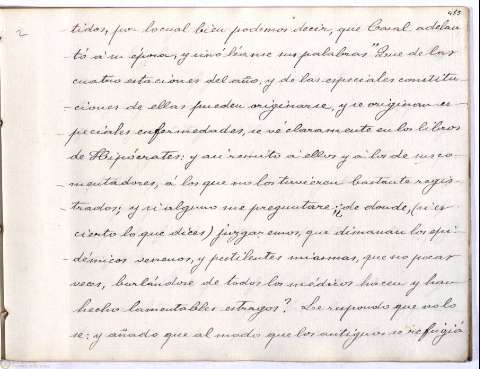 453
2
tidos, por lo cual bien podemos decir, que Casal adelan-
tó a su época, y sinó léanse sus palabras "Que de las
cuatro estaciones del año, y de las especiales constitu-
ciones de ellas pueden originarse, y se originan es-
peciales enfermedades, se vé claramente en los libros
de Hipócrates: y asi remito á ellos y á los de sus co-
mentadores, á los que no los tuvieren bastante regis-
trados; y si alguno me preguntare ¿de donde, (si es
cierto lo que dices) juzgaremos, que dimanan los epi-
démicos venenos, y pestilentes miasmas, que no pocas
veces, burlándose de todos los médicos hacen y han
hecho lamentables estragos? Le respondo que no lo
se: y añado que al modo que los antiguos se refugió